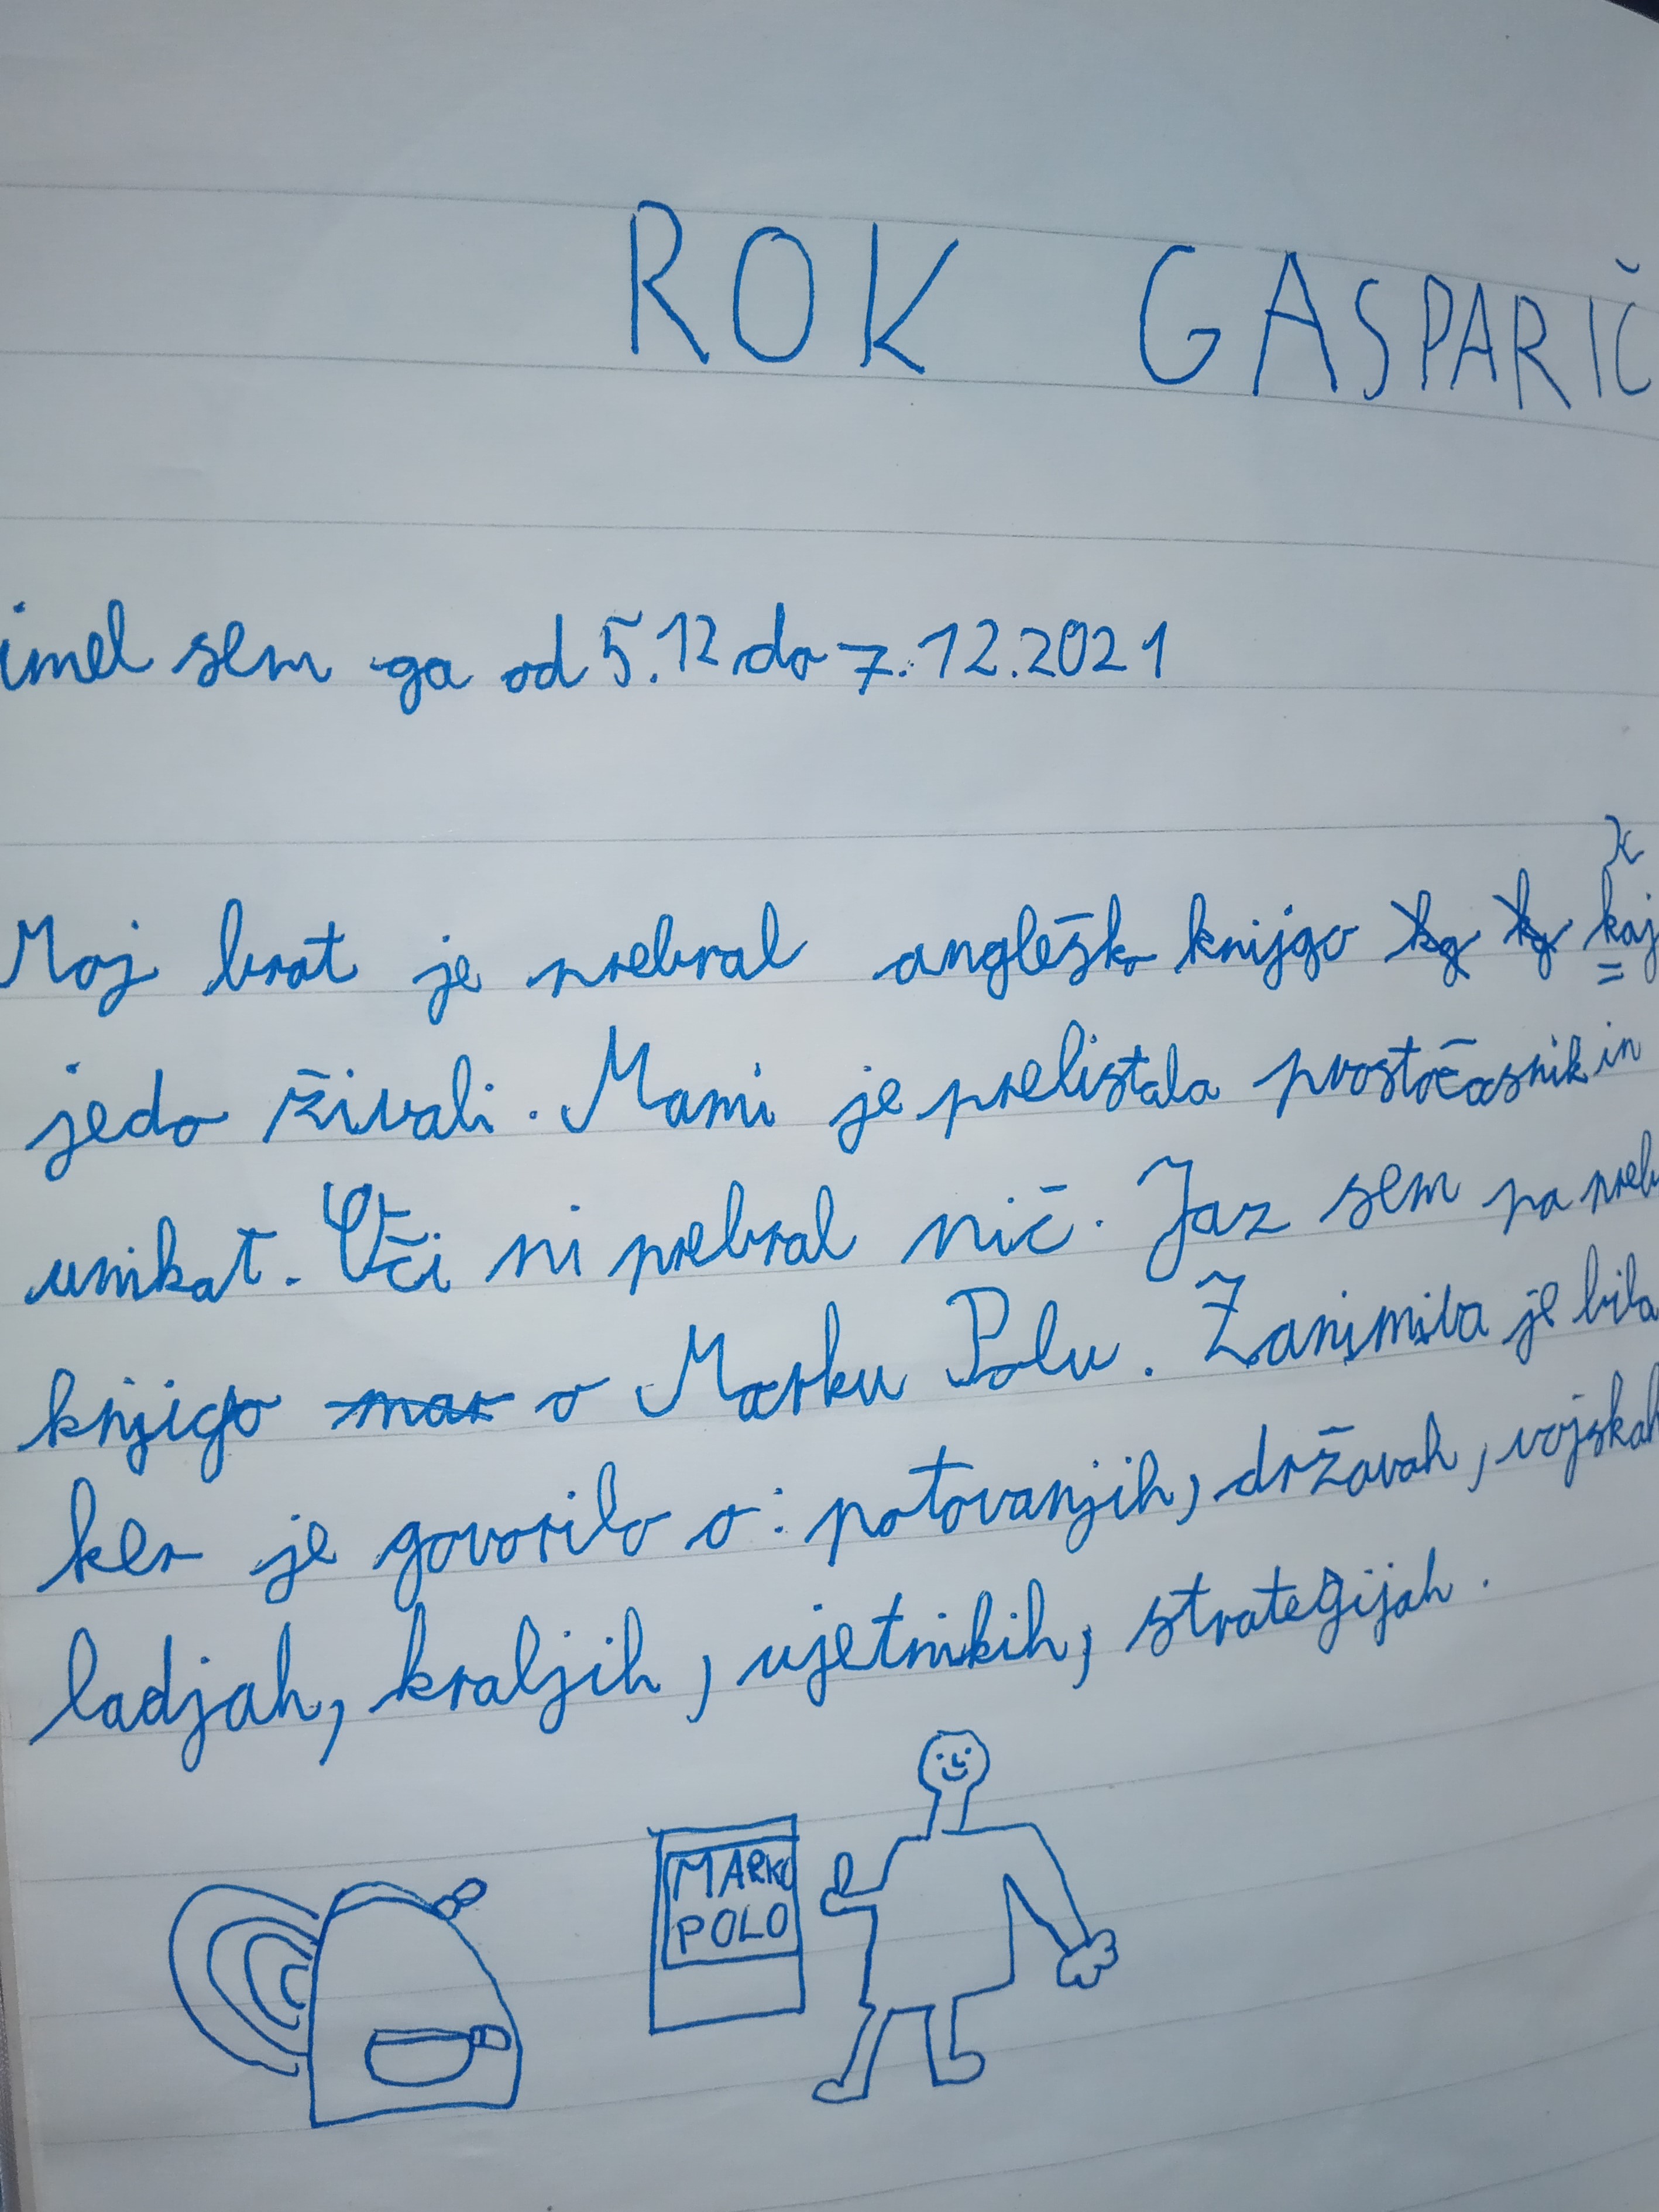 ROK GASPARIČ
imel sem ga od 5.12 do 7.12.2021
Moj brat je prebral angleško knijgo kaj
jedo živali. Mami je prelistala prostočasnik in
unikat. Oči ni prebral nič. Jaz sem pa preb
knjigo mar o Marku Polu. Zanimiva je bila
ker je govorilo o: potovanjih, državah, vojskah
ladjah, kraljih, ujetnikih, strategijah.
MARKO
POLO